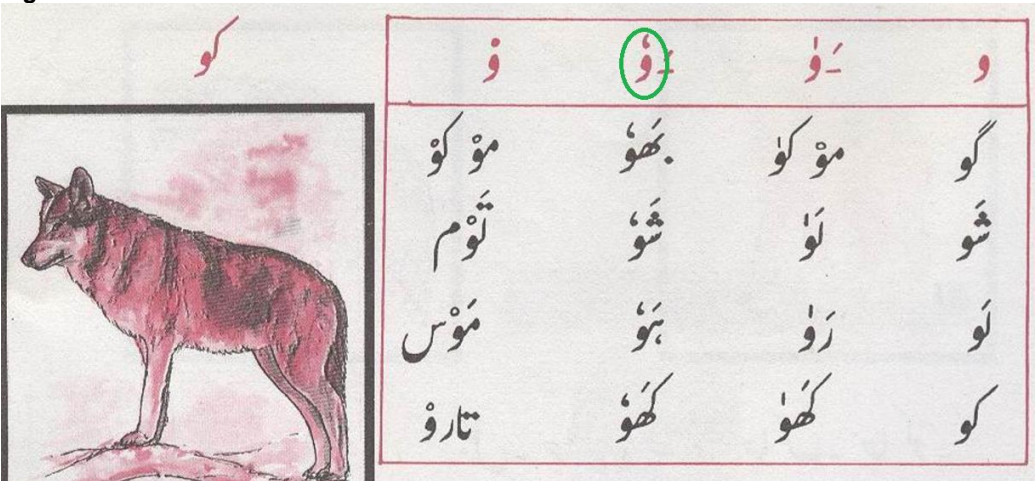 کو
و ـَوٰ ـَوٗ وْ
گو موْ کوٰ بھَوٗ موْ کوْ
شَو لَوٰ شَوٗ تَوْم
لَو رَوٰ ہَوٗ مَوْس
کو کھَوٰ کھَوٗ تاروْ